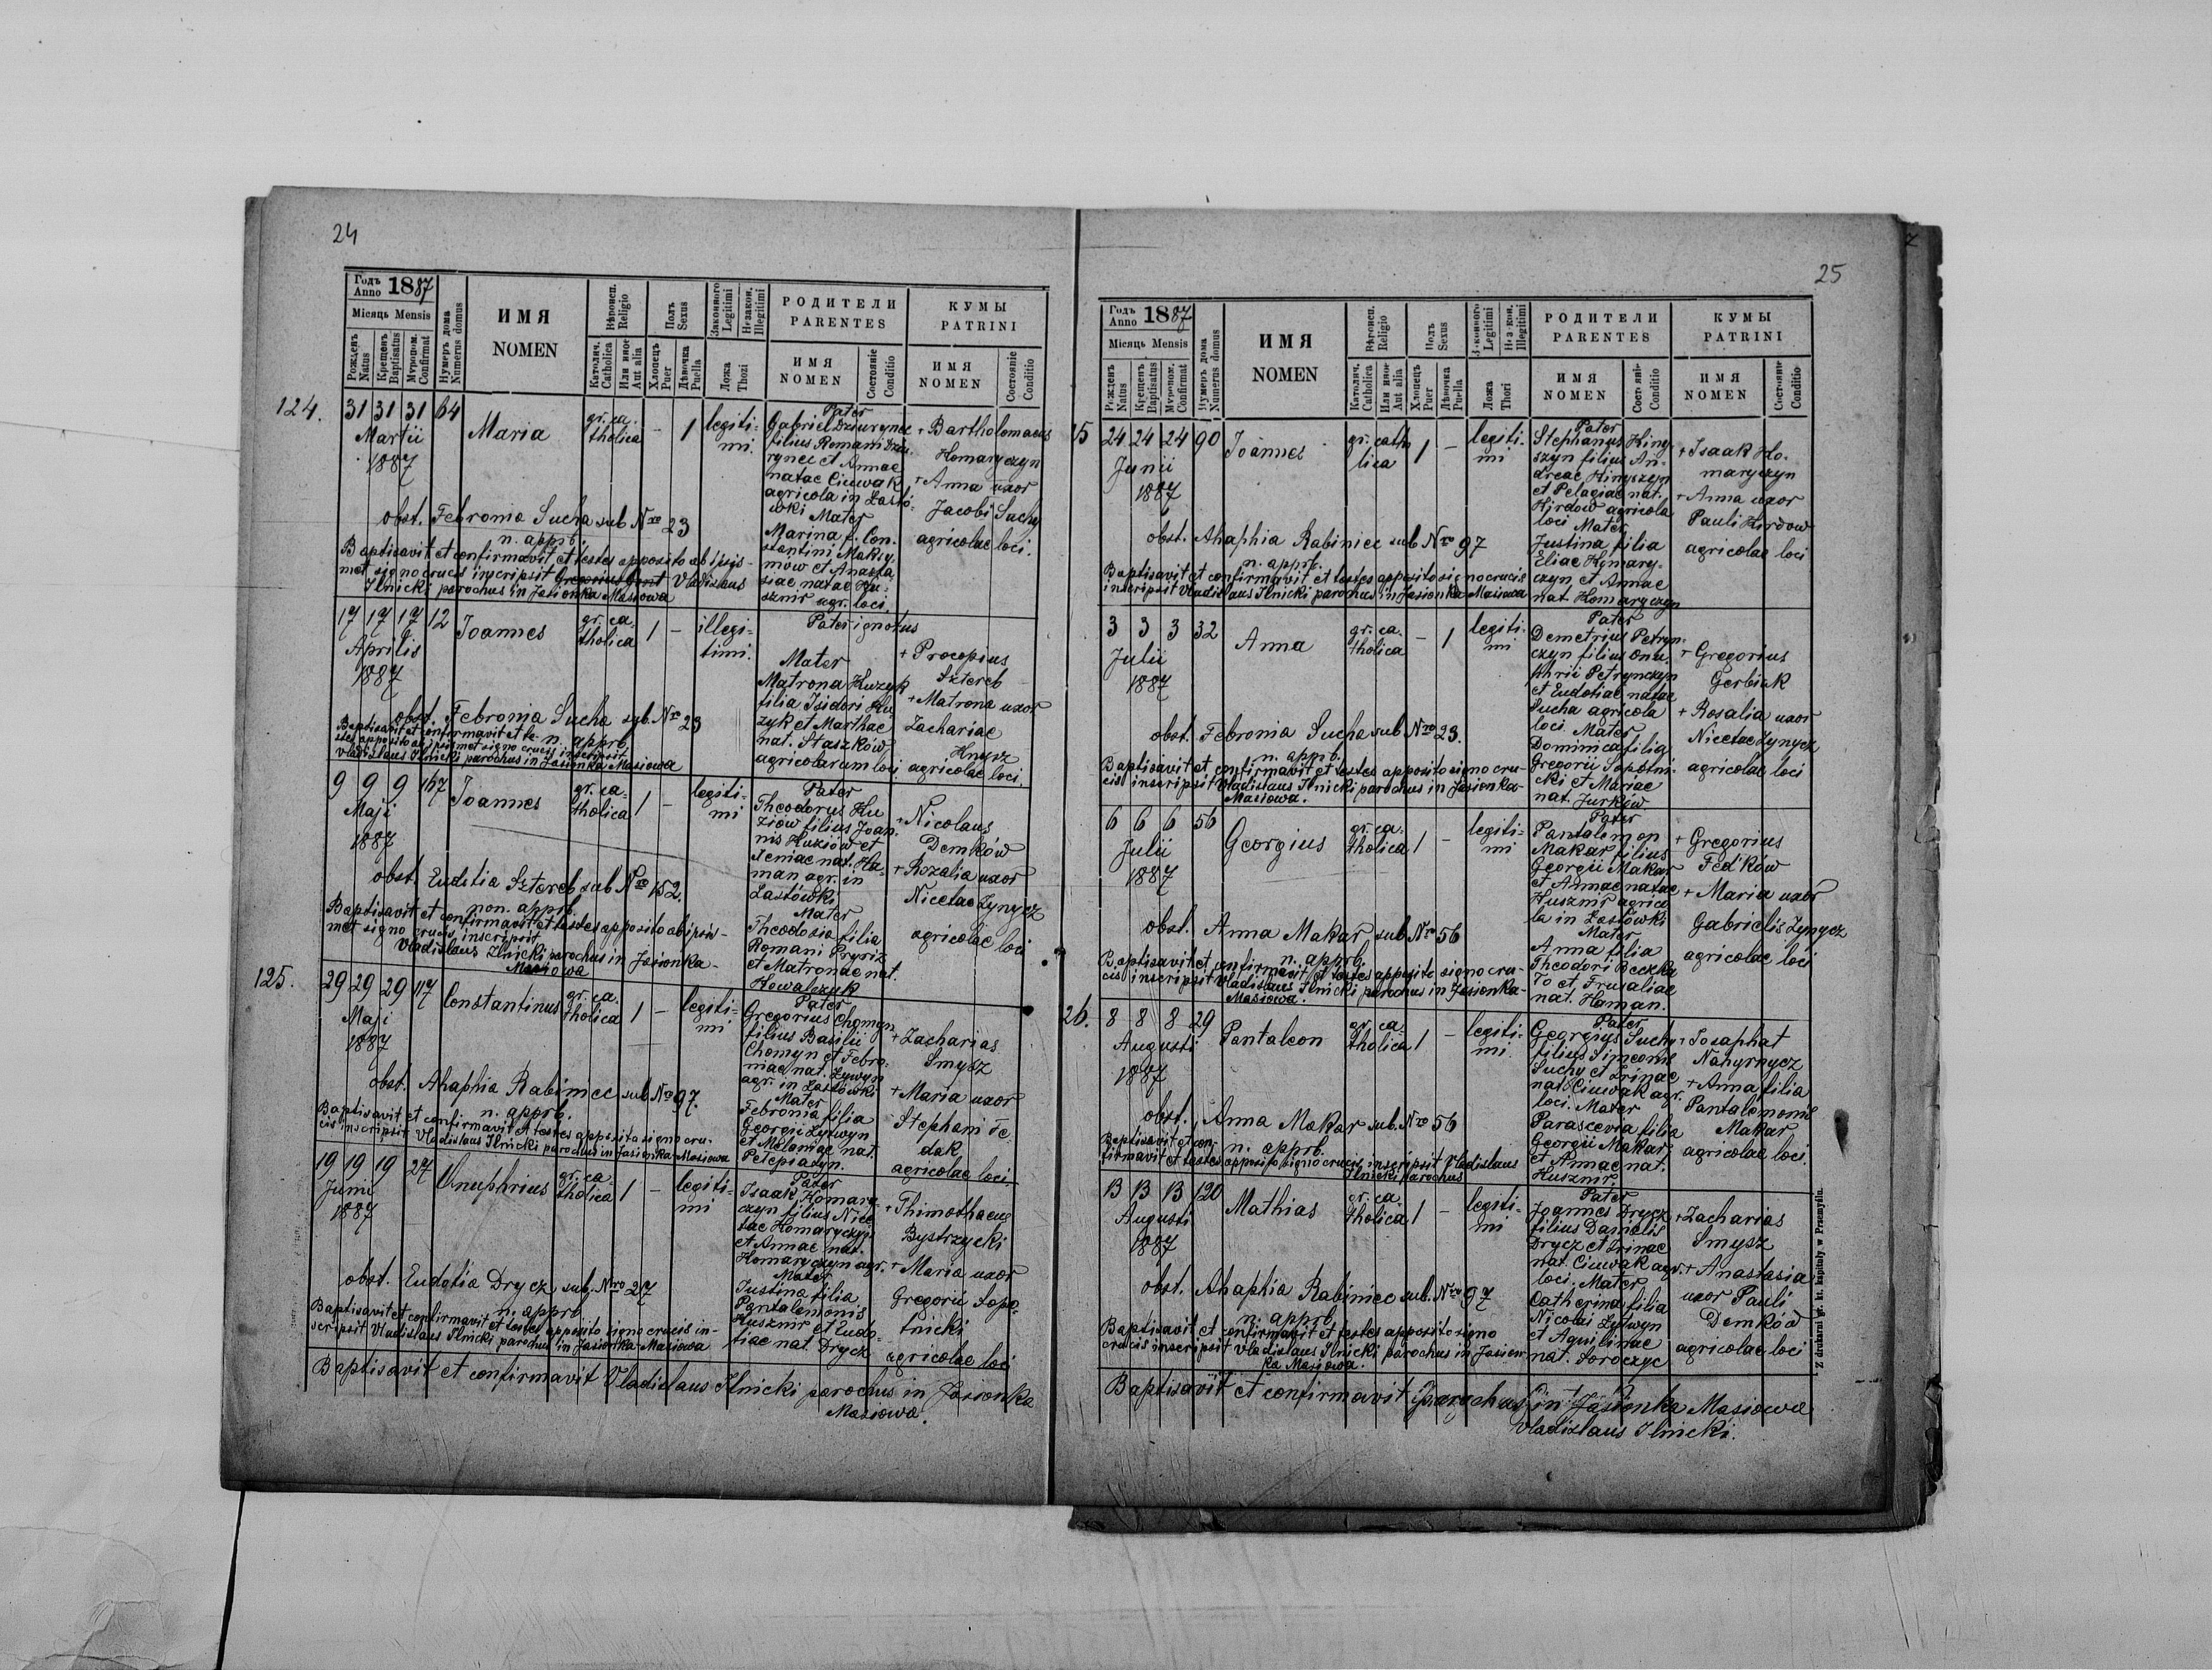 24
Годъ Anno 1887
Місяць Mensis
Рожденъ Natus
Крещенъ Baptisatus
Мѵропом. Confirmat
Нумеръ дома Numerus domus
ИМЯ NOMEN
Вѣроисп. Religio
Католич. Catholica
Или иное Aut alia
Полъ Sexus
Хлопецъ Puer
Дѣвочка Puella
Законного Legitimi
Незакон. Illegitimi
Ложа Thozi
РОДИТЕЛИ PARENTES
ИМЯ NOMEN
Состояніе Conditio
КУМЫ PATRINI
ИМЯ NOMEN
Состояніе Conditio
124.
31 31 31 64
Martii
1887
Maria
gr. ca-
tholica
- 1
legiti-
mi.
Pater
Gabriel Dziurynec
filius Romani Dziu-
rynec et Annae
natae Ciuwak
agricola in Lastó-
wki Mater
Marina f. Con-
stantini Maksy-
mow et Anasta
siae natae Hu-
sznir agr. loci.
+ Bartholomaeus
Homaryczyn
+ Anna uxor
Jacobi Suchy
agricolae loci.
obst. Febronia Sucha sub Nro 23
n. apprb.
Baptisavit et confirmavit et testes apposito ab ipsis-
met signo crucis inscripsit Vladislaus
Ilnicki parochus in Jasionka Masiowa
17 17 17 12
Aprilis
1887
Joannes
gr. ca-
tholica
1 -
illegi-
timi.
Pater ignotus
Mater
Matrona Huzyk
filia Isidori Hu
zyk et Marthae
nat. Staszków
agricolarum loci
+ Procopius
Sztereb
+ Matrona uxor
Zachariae
Hnysz
agricolae loci.
obst. Febronia Sucha sub. Nro 23
n. apprb.
Baptisavit et confirmavit et te-
stes apposito ab ipsismet signo crucis inscripsit
Vladislaus Ilnicki parochus in Jasionka Masiowa
9 9 9 167
Maji
1887
Joannes
gr. ca-
tholica
1 -
legiti-
mi
Pater
Theodorus Hu
ziów filius Joan-
nis Huziów et
Xeniae nat. Ha-
man agr. in
Lastówki
Mater
Theodosia filia
Romani Pryriz
et Matronae nat.
Howalczuk
+ Nicolaus
Demków
+ Rozalia uxor
Nicetae Zynycz
agricolae loci
obst. Eudotia Sztereb sub Nro 152.
non. apprb.
Baptisavit et confirmavit et testes apposito ab ipsis-
met signo crucis inscripsit
Vladislaus Ilnicki parochus in Jasionka-
Masiowa
125.
29 29 29 117
Maji
1887
Constantinus
gr. ca-
tholica
1 -
legiti-
mi
Pater
Gregorius Chomyn
filius Basilii
Chomyn et Febro-
niae nat. Lywyn
agr. in Lastówki
Mater
Febronia filia
Georgii Lytwyn
et Melaniae nat.
+ Zacharias
Smysz
+ Maria uxor
Stephani Fe-
dak
agricolae loci.
obst. Ahaphia Rabiniec sub No 97.
n. apprb.
Baptisavit et confirmavit et testes apposito signo cru-
cis inscripsit Vladislaus Ilnicki parochus in Jasionka-Masiowa
19 19 19 27
Junii
1887
Onuphrius
gr. ca-
tholica
1 -
legiti-
mi
Pater
Isaak Homary-
czyn filius Nice-
tae Homaryczyn
et Annae nat.
Homaryczyn agr.
Mater
Justina filia
Pantalemonis
Husznir et Eudo-
tiae nat. Drycz
+ Thimothaeus
Bystrzycki
+ Maria uxor
Gregorii Sopo-
tnicki
agricolae loci
obst. Eudotia Drycz sub. Nro 27
n. apprb.
Baptisavit et confirmavit et testes apposito signo crucis in-
scripsit Vladislaus Ilnicki parochus in Jasionka-Masiowa
Baptisavit et confirmavit Vladislaus Ilnicki parochus in Jasionka
Masiowa.
25
Годъ Anno 1887
Місяць Mensis
Рожденъ Natus
Крещенъ Baptisatus
Мѵропом. Confirmat
Нумеръ дома Numerus domus
ИМЯ NOMEN
Вѣроисп. Religio
Католич. Catholica
Или иное Aut alia
Полъ Sexus
Хлопецъ Puer
Дѣвочка Puella
Законного Legitimi
Незакон. Illegitimi
Ложа Thori
РОДИТЕЛИ PARENTES
ИМЯ NOMEN
Состояніе Conditio
КУМЫ PATRINI
ИМЯ NOMEN
Состояніе Conditio
15
24 24 24 90
Junii
1887
Joannes
gr. catho
lica
1 -
legiti-
mi
Pater
Stephanus Hiny-
szyn filius An-
dreae Hinyszyn
et Pelagiae nat.
Hirdow agricola
loci Mater
Justina filia
Eliae Homary-
czyn et Annae
nat. Homaryczyn
+ Isaak Ho-
maryczyn
+ Anna uxor
Pauli Hirdow
agricolae loci
obst. Ahaphia Rabiniec sub Nro 97
n. apprb.
Baptisavit et confirmavit et testes apposito signo crucis
inscripsit Vladislaus Ilnicki parochus in Jasionka Masiowa
3 3 3 32
Julii
1887
Anna
gr. ca-
tholica
- 1
legiti-
mi
Pater
Demetrius Petryn-
czyn filius Onu-
phrii Petrynczyn
et Eudotiae natae
Sucha agricola
loci Mater
Dominica filia
Gregorii Sopotni-
cki et Mariae
nat. Jurków
+ Gregorius
Gerbiak
+ Rosalia uxor
Nicetae Zynycz
agricolae loci
obst. Febronia Sucha sub Nro 23.
n. apprb.
Baptisavit et confirmavit et testes apposito signo cru-
cis inscripsit Vladislaus Ilnicki parochus in Jasionka-
Masiowa.
6 6 6 56
Julii
1887
Georgius
gr. ca-
tholica
1 -
legiti-
mi
Pater
Pantalemon
Makar filius
Georgii Makar
et Annae natae
Husznir agrico
la in Lastówki
Mater
Anna filia
Theodori Beczka
To et Frusaliae
nat. Haman.
+ Gregorius
Fedków
+ Maria uxor
Gabrielis Zynycz
agricolae loci
obst. Anna Makar sub Nro 56
n. apprb.
Baptisavit et confirmavit et testes apposito signo cru-
cis inscripsit Vladislaus Ilnicki parochus in Jasionka-
Masiowa.
26.
8 8 8 29
Augusti
1887
Pantaleon
gr. ca-
tholica
1 -
legiti-
mi.
Pater
Georgius Suchy
filius Simeonis
Suchy et Irinae
nat. Ciuwak agr.
loci. Mater
Parascevia filia
Georgii Makar
et Annae nat.
Husznir
+ Josaphat
Nahyrnycz
+ Anna filia
Pantalemonis
Makar
agricolae loci.
obst. Anna Makar sub. Nro 56
n. apprb.
Baptisavit et con-
firmavit et testes apposito signo crucis inscripsit Vladislaus
Ilnicki parochus
13 13 13 120
Augusti
1887
Mathias
gr. ca-
tholica
1 -
legiti-
mi
Pater
Joannes Drycz
filius Danielis
Drycz et Irinae
nat. Ciuwak agr.
loci. Mater
Catherina filia
Nicolai Lytwyn
et Aquilinae
nat. Soroczyc
+ Zacharias
Smysz
+ Anastasia
uxor Pauli
Demków
agricolae loci
obst. Ahaphia Rabiniec sub. Nro 97
n. apprb.
Baptisavit et confirmavit et testes apposito signo
crucis inscripsit Vladislaus Ilnicki parochus in Jasion-
ka Masiowa.
Baptisavit et confirmavit parochus in Jasionka Masiowa
Vladislaus Ilnicki.
Z drukarni gr. kt. kapituły w Przemyślu.